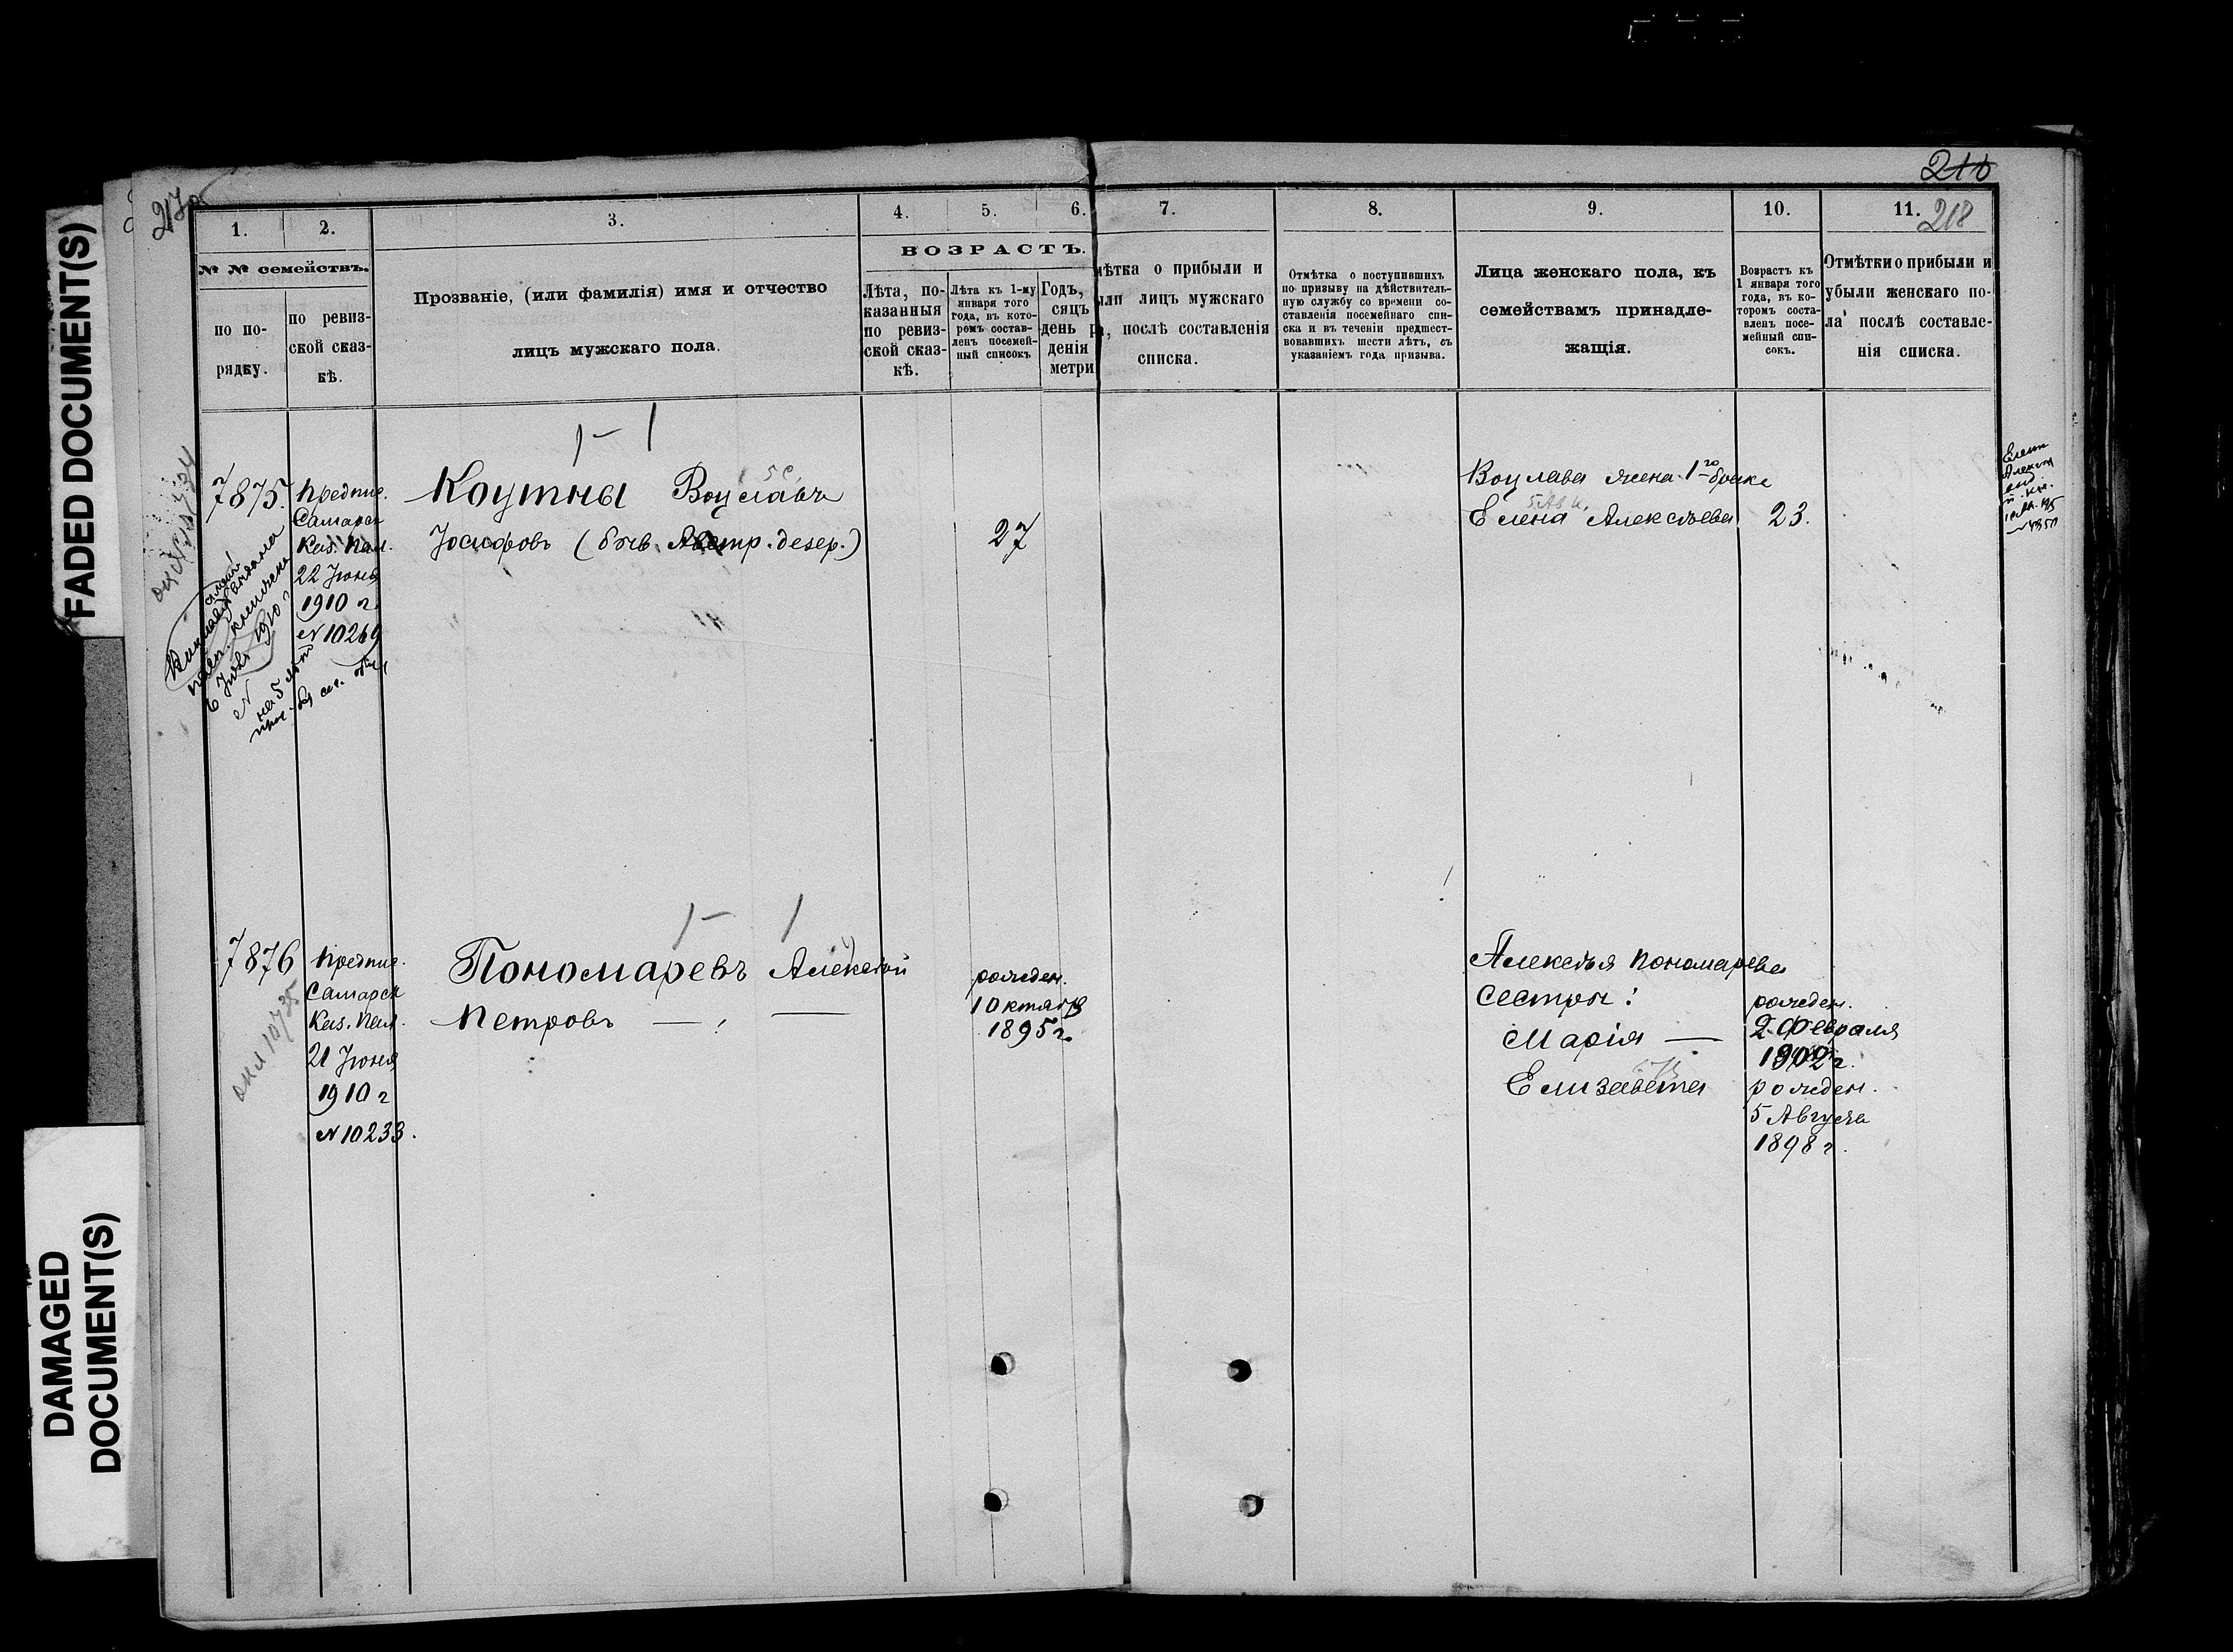 FADED DOCUMENT(S)
DAMAGED
DOCUMENT(S)
218
1. 2. 3. 4. 5. 6. 7. 8. 9. 10. 11.
№ № семействъ.
по по-
рядку.
по ревиз-
ской сказ-
кѣ.
Прозваніе, (или фамилія) имя и отчество
лицъ мужскаго пола.
ВОЗРАСТЪ.
Лѣта, по-
казанныя
по ревиз-
ской сказ-
кѣ.
Лѣта къ 1-му
января того
года, въ кото-
ромъ состав-
ленъ посемей-
ный списокъ
Годъ,
сяцъ
день р
денія
метри
мѣтка о прибыли и
ыли лицъ мужскаго
а, послѣ составленія
списка.
Отмѣтка о поступившихъ
по призыву на дѣйствитель-
ную службу со времени со-
ставленія посемейнаго спи-
ска и въ теченіи предшест-
вовавшихъ шести лѣтъ, съ
указаніемъ года призыва.
Лица женскаго пола, къ
семействамъ принадле-
жащія.
Возрастъ къ
1 января того
года, въ ко-
торомъ соста-
вленъ посе-
мейный спи-
сокъ.
Отмѣтки о прибыли и
убыли женскаго по-
ла послѣ составле-
нія списка.
1 - 1
7875.
Предпис.
Самарск
Каз. Пал.
22 Іюня
1910 г.
№ 10269
Коутны Воцлавъ
Іосифовъ (бывъ. Австр. дезер.)
27
Воцлава жена 1го брака
Елена Алексѣева 23.
6 Іюл 1910 г
на 5 лѣт
1 - 1
7876
Предпис.
Самарск
Каз. Пал.
21 Іюня
1910 г
№ 10233.
окл 10735
Пономаревъ Алексѣй
Петровъ —
рожден.
1 Октября
1895 г.
Алексѣя Пономарева
сестры:
Марія —
рожден.
2 Февраля
1902 г.
Елизавета
рожден.
5 Августа
1898 г.